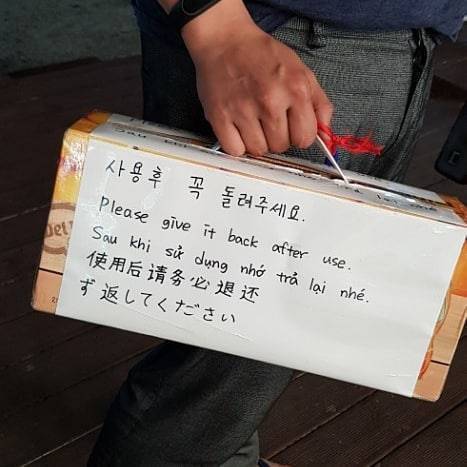 사용후 꼭 돌려주세요.
Please give it back after use.
Sau khi sử dụng nhớ trả lại nhé.
使用后请务必退还
ず返してください